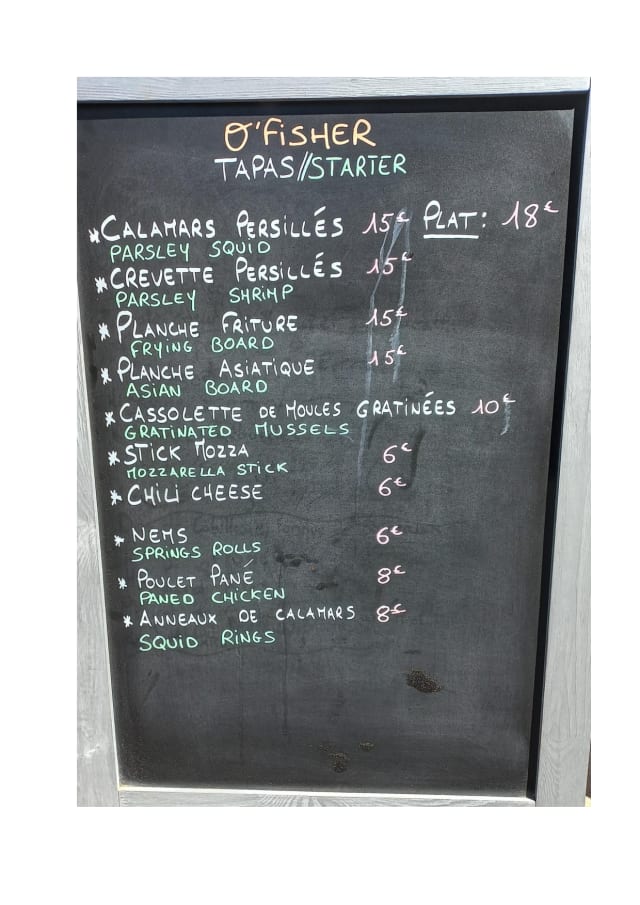 O'FISHER
TAPAS//STARTER
*CALAMARS PERSILLÉS 15€ PLAT: 18€
PARSLEY SQUID
*CREVETTE PERSILLÉS 15€
PARSLEY SHRIMP
*PLANCHE FRITURE 15€
FRYING BOARD
*PLANCHE ASIATIQUE 15€
ASIAN BOARD
*CASSOLETTE DE MOULES GRATINÉES 10€
GRATINATED MUSSELS
*STICK MOZZA 6€
MOZZARELLA STICK
*CHILI CHEESE 6€
*NEMS 6€
SPRINGS ROLLS
*POULET PANÉ 8€
PANED CHICKEN
*ANNEAUX DE CALAMARS 8€
SQUID RINGS